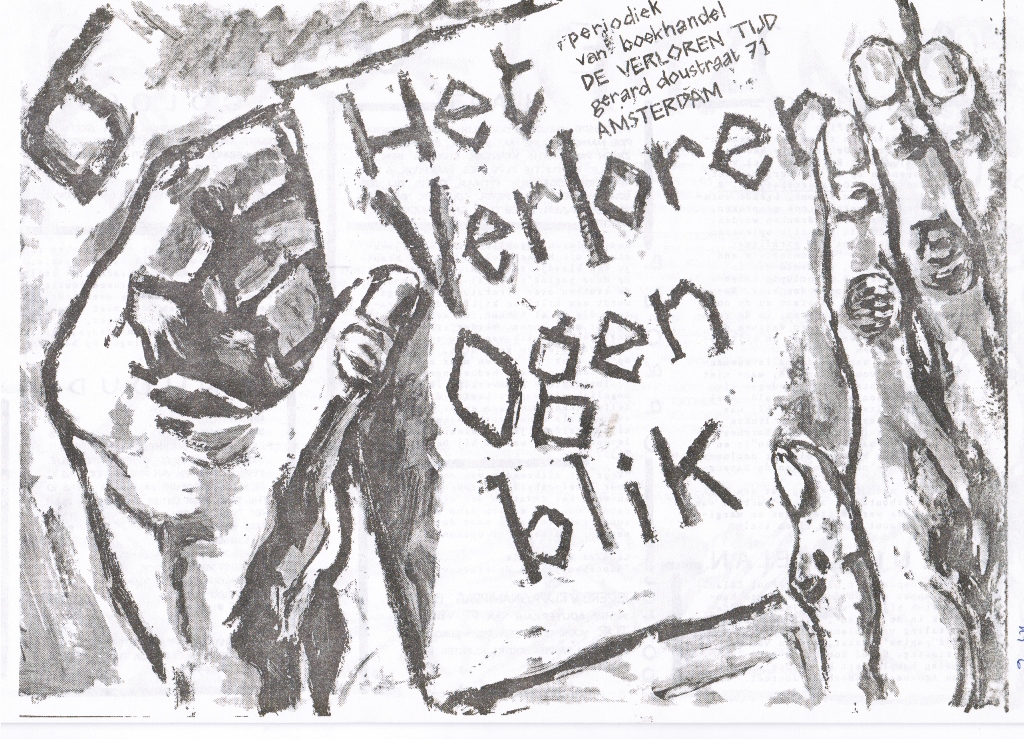 periodiek
van boekhandel
DE VERLOREN TIJD
gerard doustraat 71
AMSTERDAM
Het
Verloren
Ogen
blik